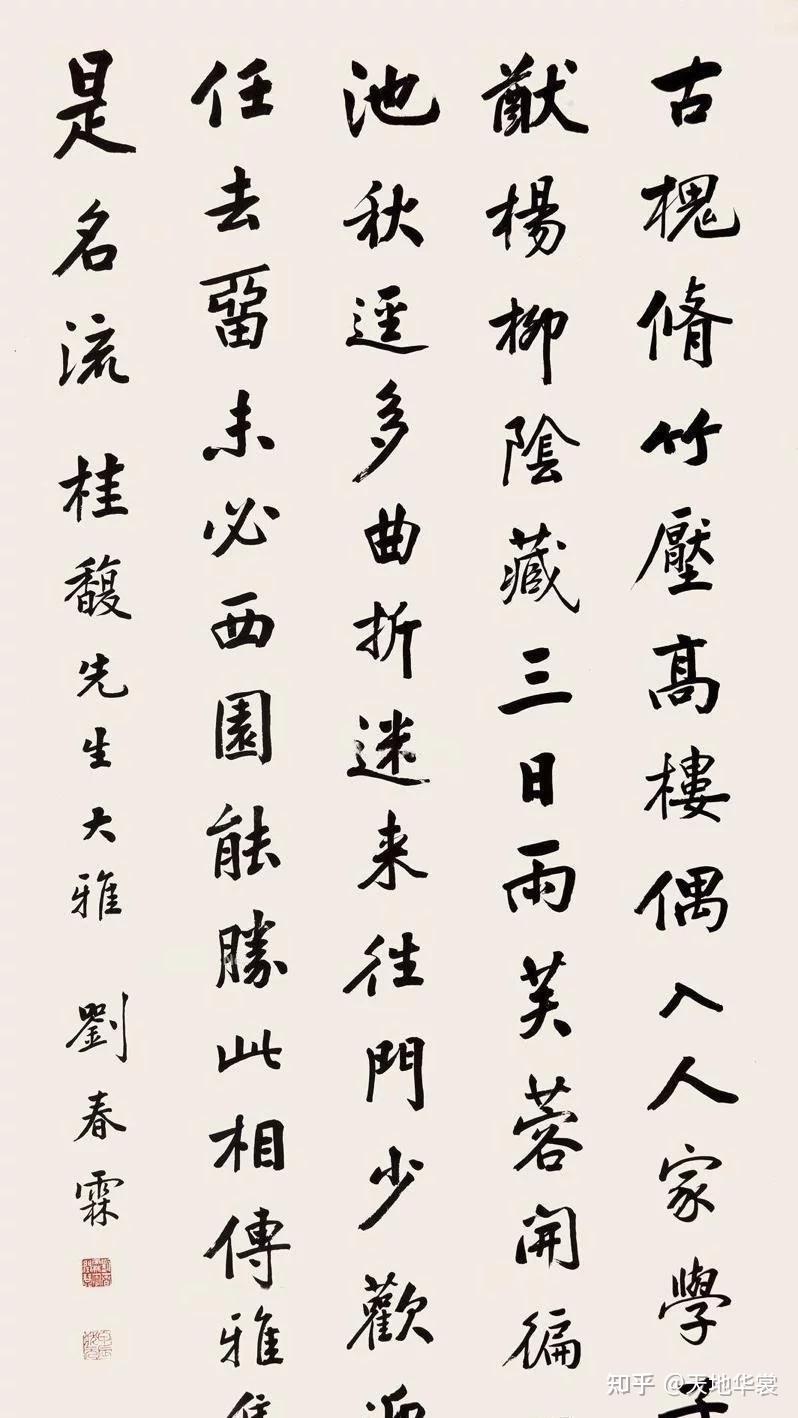 古槐脩竹壓高樓偶入人家學子
猷楊柳陰藏三日雨芙蓉開徧
池秋逕多曲折迷來往門少歡迎
任去畱未必西園能勝此相傳雅集
是名流 桂馥先生大雅 劉春霖
知乎 @天地华裳